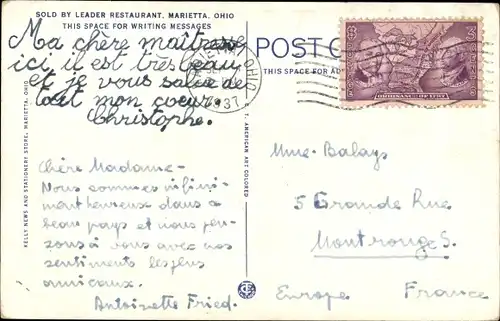 SOLD BY LEADER RESTAURANT, MARIETTA, OHIO
THIS SPACE FOR WRITING MESSAGES
Ma chère maîtresse
ici il est très beau
et je vous salue de
tout mon coeur.
Christophe.
Chère Madame-
Nous sommes infini-
ment heureux dans a
beau pays et nous pen-
sons à vous avec nos
sentiments les plus
amicaux.
Antoinette Fried.
KELLY NEWS AND STATIONERY STORE, MARIETTA, OHIO
C. T. AMERICAN ART COLORED
POST C
THIS SPACE FOR AD
OHIO
1937
3
Mme. Balays
5 Grande Rue
Montrouge S.
Europe France